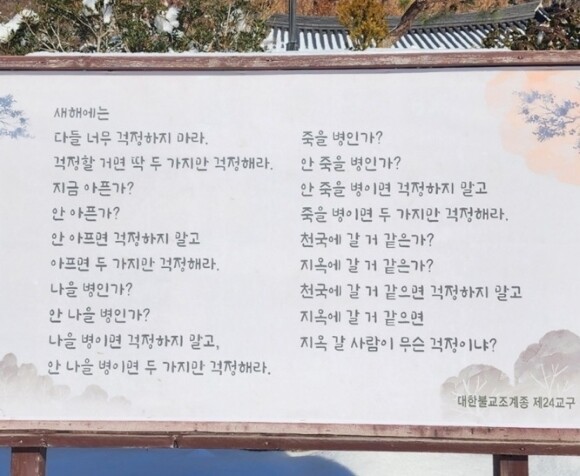 새해에는
다들 너무 걱정하지 마라.
걱정할 거면 딱 두 가지만 걱정해라.
지금 아픈가?
안 아픈가?
안 아프면 걱정하지 말고
아프면 두 가지만 걱정해라.
나을 병인가?
안 나을 병인가?
나을 병이면 걱정하지 말고,
안 나을 병이면 두 가지만 걱정해라.
죽을 병인가?
안 죽을 병인가?
안 죽을 병이면 걱정하지 말고
죽을 병이면 두 가지만 걱정해라.
천국에 갈 거 같은가?
지옥에 갈 거 같은가?
천국에 갈 거 같으면 걱정하지 말고
지옥에 갈 거 같으면
지옥 갈 사람이 무슨 걱정이냐?
대한불교조계종 제24교구